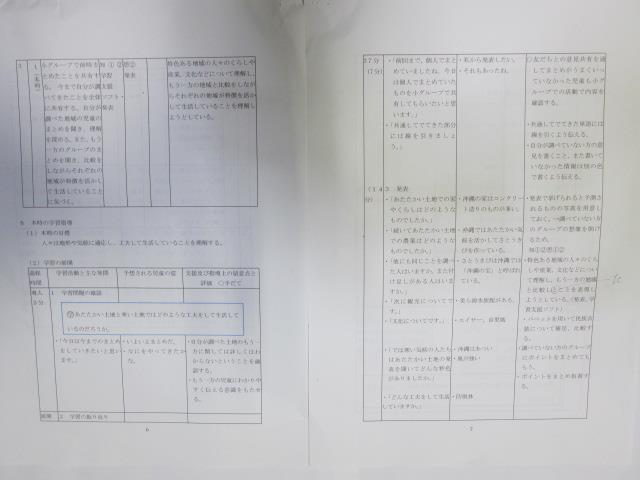 3
1
(本時)
小グループで前時まとめたことを共有する。今まで自分が調べてきたことを全体に共有する。自分が調べた地域の児童のまとめを聞き、理解を深める。また、もう一方のグループのまとめを聞き、比較をしながらそれぞれの地域が特徴を活かして生活していることに気づく。
知①②思②
発表
ソフト
発表
特色ある地域の人々のくらしや産業、文化などについて理解し、もう一方の地域と比較をしながらそれぞれの地域が特徴を活かして生活していることを理解しようとしている。
6 本時の学習指導
(1) 本時の目標
人々は地形や気候に適応し、工夫して生活していることを理解する。
(2) 学習の展開
過程
時間
学習活動と主な発問
予想される児童の姿
支援及び指導上の留意点と
評価 ○手だて
導入
3分
1 学習問題の確認
あたたかい土地と寒い土地ではどのような工夫をして生活しているのだろうか。
・「今日は今までのまとめをしていきたいと思います。」
・いよいよまとめだ。
・なにをやってきたかな。
・自分が調べた土地のもう一方に関しては詳しくはわからないということを確認する。
・もう一方の児童にわかりやすく伝える意識をもたせる。
展開
2 学習の振り返り
6
37分
(7分)
・「前回まで、個人でまとめていましたね。今日は個人でまとめていたものを小グループで共有してもらいたいと思います。」
・「共通してでてきた部分には線を引きましょう。」
・私から発表したい。
・それもあったね。
○友だちとの意見共有を通してまとめがうまくいっていなかった児童も小グループでの活動で内容を確認する。
・共通してでてきた単語には線を引くよう伝える。
・自分が調べていない方の意見を書くこと、まだ書いていなかった情報は別の色で書くよう伝える。
(14分)
3 発表
・「あたたかい土地での家やくらしはどのようなものでしたか。」
・「続いてあたたかい土地での農業はどのようなものでしたか。」
・「他にも同じことを調べた人はいますか。また付け足しがある人はいますか。」
・「次に観光についてです。」
・「文化についてです。」
・「では寒い気候の人たちはあたたかい土地の発表を聞いてどんな特色がありましたか。」
・「どんな工夫をして生活していますか。」
・沖縄の家はコンクリート造りのものが多い。
・沖縄ではあたたかい気候を活かしてさとうきびを作っている。
・さとうきびは沖縄では「沖縄の宝」と呼ばれている。
・美ら海水族館がある。
・エイサー、首里城
・沖縄はあつい
・風が強い
・防風林
・発表で挙げられると予測されるものの写真を用意しておく。→調べていない方のグループの想像を助けるため。
知①②思①②
・特色ある地域の人々のくらしや産業、文化などについて理解し、もう一方の地域と比較しことを表現しようとしている。(発表、学習支援ソフト)
・パペットを用いて民族衣装について補足、比較する。
・調べていない方のグループにポイントをまとめてもらう。
・ポイントをまとめ板書する。
7